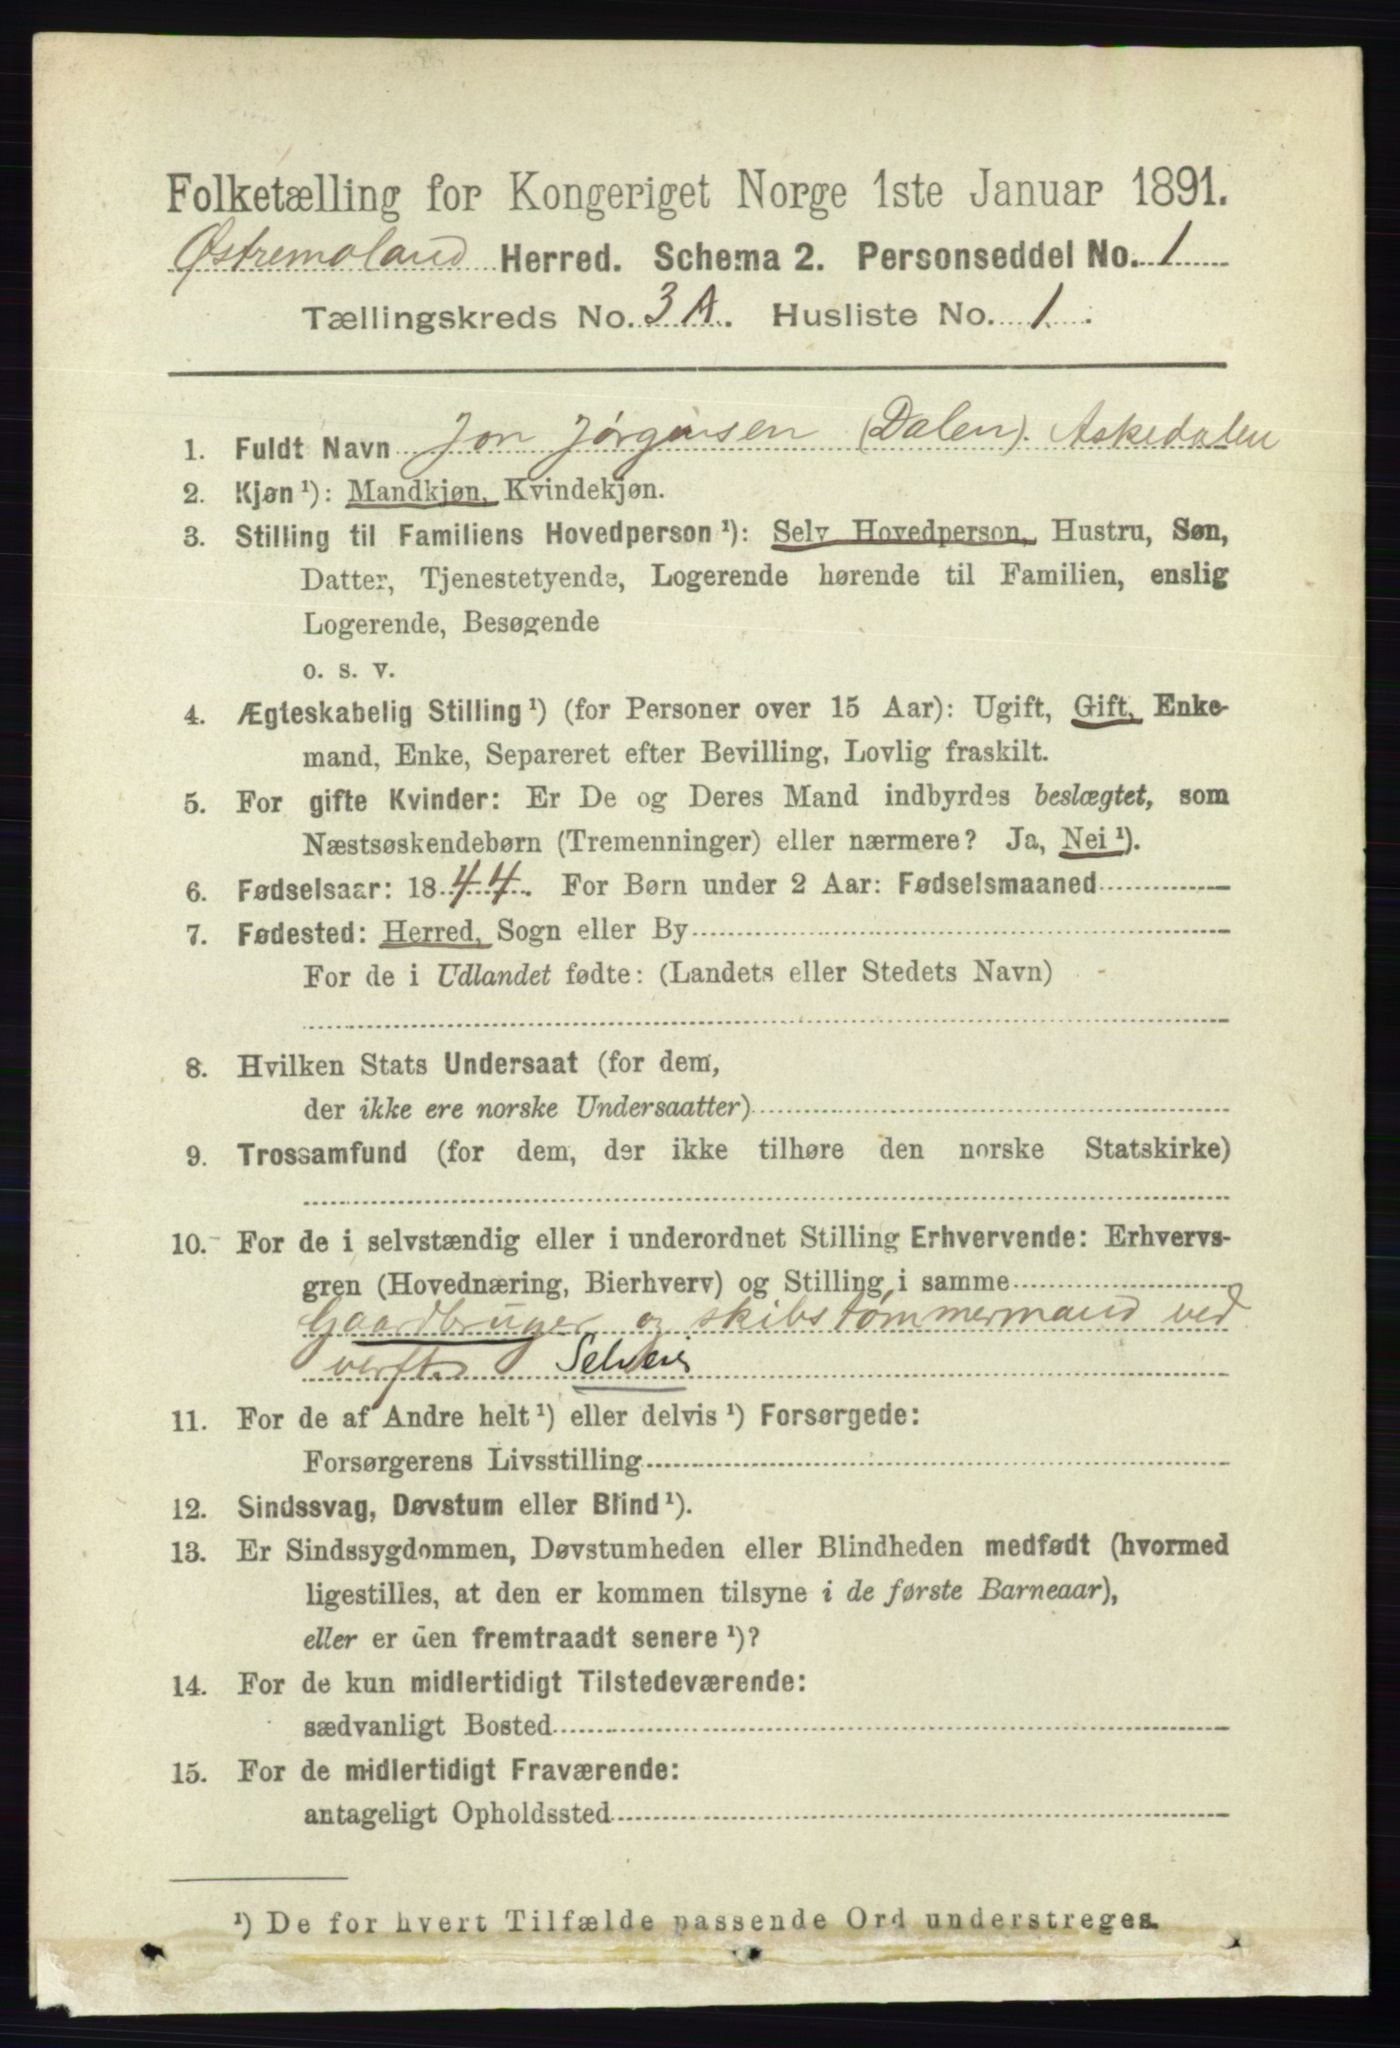 Folketælling for Kongeriget Norge 1ste Januar 1891.
Østremoland Herred. Schema 2. Personseddel No. 1
Tællingskreds No. 3A. Husliste No. 1.
1. Fuldt Navn Jon Jørgensen (Dalen). Askedalen
2. Kjøn¹): Mandkjøn, Kvindekjøn.
3. Stilling til Familiens Hovedperson¹): Selv Hovedperson, Hustru, Søn,
Datter, Tjenestetyende, Logerende hørende til Familien, enslig
Logerende, Besøgende
o. s. v.
4. Ægteskabelig Stilling¹) (for Personer over 15 Aar): Ugift, Gift, Enke-
mand, Enke, Separeret efter Bevilling, Lovlig fraskilt.
5. For gifte Kvinder: Er De og Deres Mand indbyrdes beslægtet, som
Næstsøskendebørn (Tremenninger) eller nærmere? Ja, Nei¹).
6. Fødselsaar: 1844. For Børn under 2 Aar: Fødselsmaaned
7. Fødested: Herred, Sogn eller By
For de i Udlandet fødte: (Landets eller Stedets Navn)
8. Hvilken Stats Undersaat (for dem,
der ikke ere norske Undersaatter)
9. Trossamfund (for dem, der ikke tilhøre den norske Statskirke)
10. For de i selvstændig eller i underordnet Stilling Erhvervende: Erhvervs-
gren (Hovednæring, Bierhverv) og Stilling i samme
Gaardbruger og skibstømmermand ved
verft. Selveier
11. For de af Andre helt¹) eller delvis¹) Forsørgede:
Forsørgerens Livsstilling
12. Sindssvag, Døvstum eller Blind¹).
13. Er Sindssygdommen, Døvstumheden eller Blindheden medfødt (hvormed
ligestilles, at den er kommen tilsyne i de første Barneaar),
eller er den fremtraadt senere¹)?
14. For de kun midlertidigt Tilstedeværende:
sædvanligt Bosted
15. For de midlertidigt Fraværende:
antageligt Opholdssted
¹) De for hvert Tilfælde passende Ord understreges.